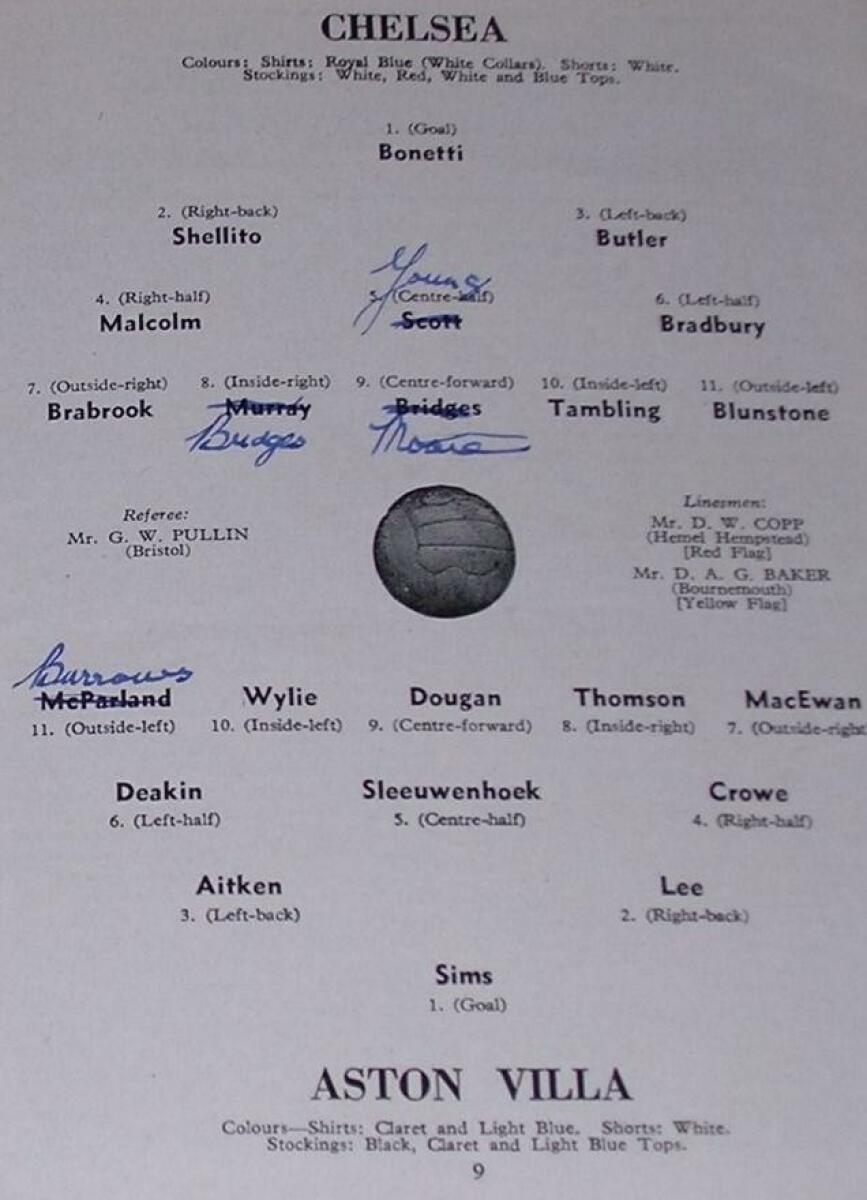 CHELSEA
Colours: Shirts: Royal Blue (White Collars). Shorts: White.
Stockings: White, Red, White and Blue Tops.
1. (Goal)
Bonetti
2. (Right-back) 3. (Left-back)
Shellito Butler
Young
4. (Right-half) 5. (Centre-half) 6. (Left-half)
Malcolm Scott Bradbury
7. (Outside-right) 8. (Inside-right) 9. (Centre-forward) 10. (Inside-left) 11. (Outside-left)
Brabrook Murray Bridges Tambling Blunstone
Bridges Moore
Referee:
Mr. G. W. PULLIN
(Bristol)
Linesmen:
Mr. D. W. COPP
(Hemel Hempstead)
[Red Flag]
Mr. D. A. G. BAKER
(Bournemouth)
[Yellow Flag]
Burrows
McParland Wylie Dougan Thomson MacEwan
11. (Outside-left) 10. (Inside-left) 9. (Centre-forward) 8. (Inside-right) 7. (Outside-right
Deakin Sleeuwenhoek Crowe
6. (Left-half) 5. (Centre-half) 4. (Right-half)
Aitken Lee
3. (Left-back) 2. (Right-back)
Sims
1. (Goal)
ASTON VILLA
Colours—Shirts: Claret and Light Blue. Shorts: White.
Stockings: Black, Claret and Light Blue Tops.
9